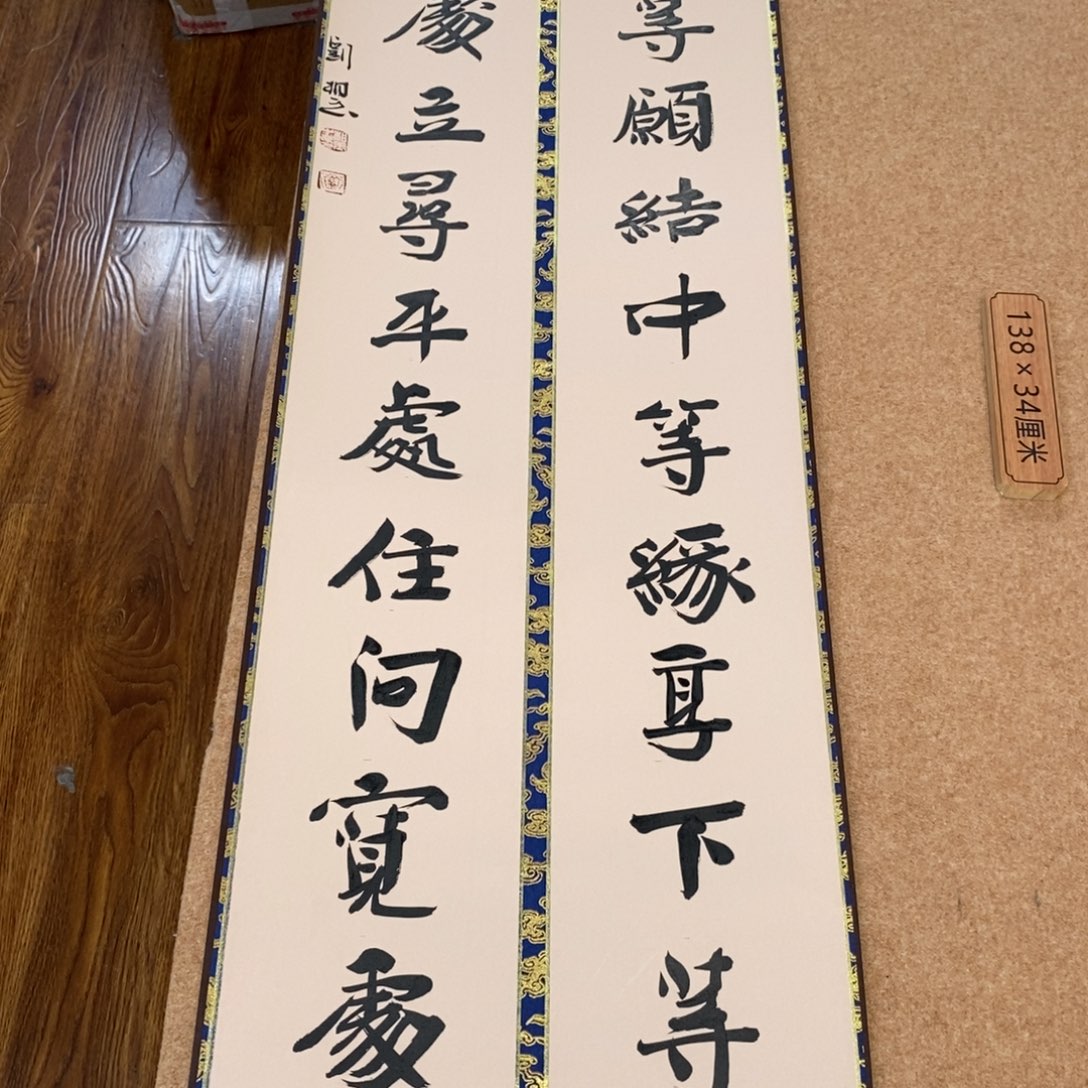 等願結中等緣享下等
處立尋平處住向寬處
劉
138×34厘米